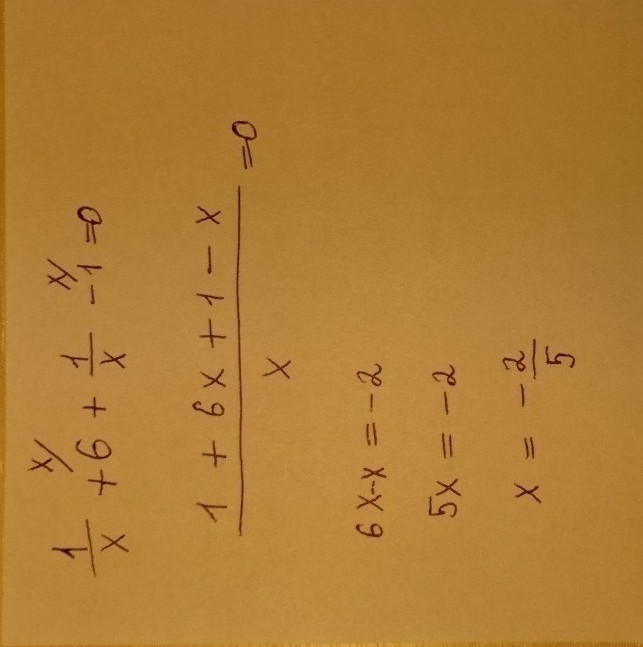 1/x + 6 x/ + 1/x - 1 x/ = 0
(1 + 6x + 1 - x)/x = 0
6x-x = -2
5x = -2
x = -2/5